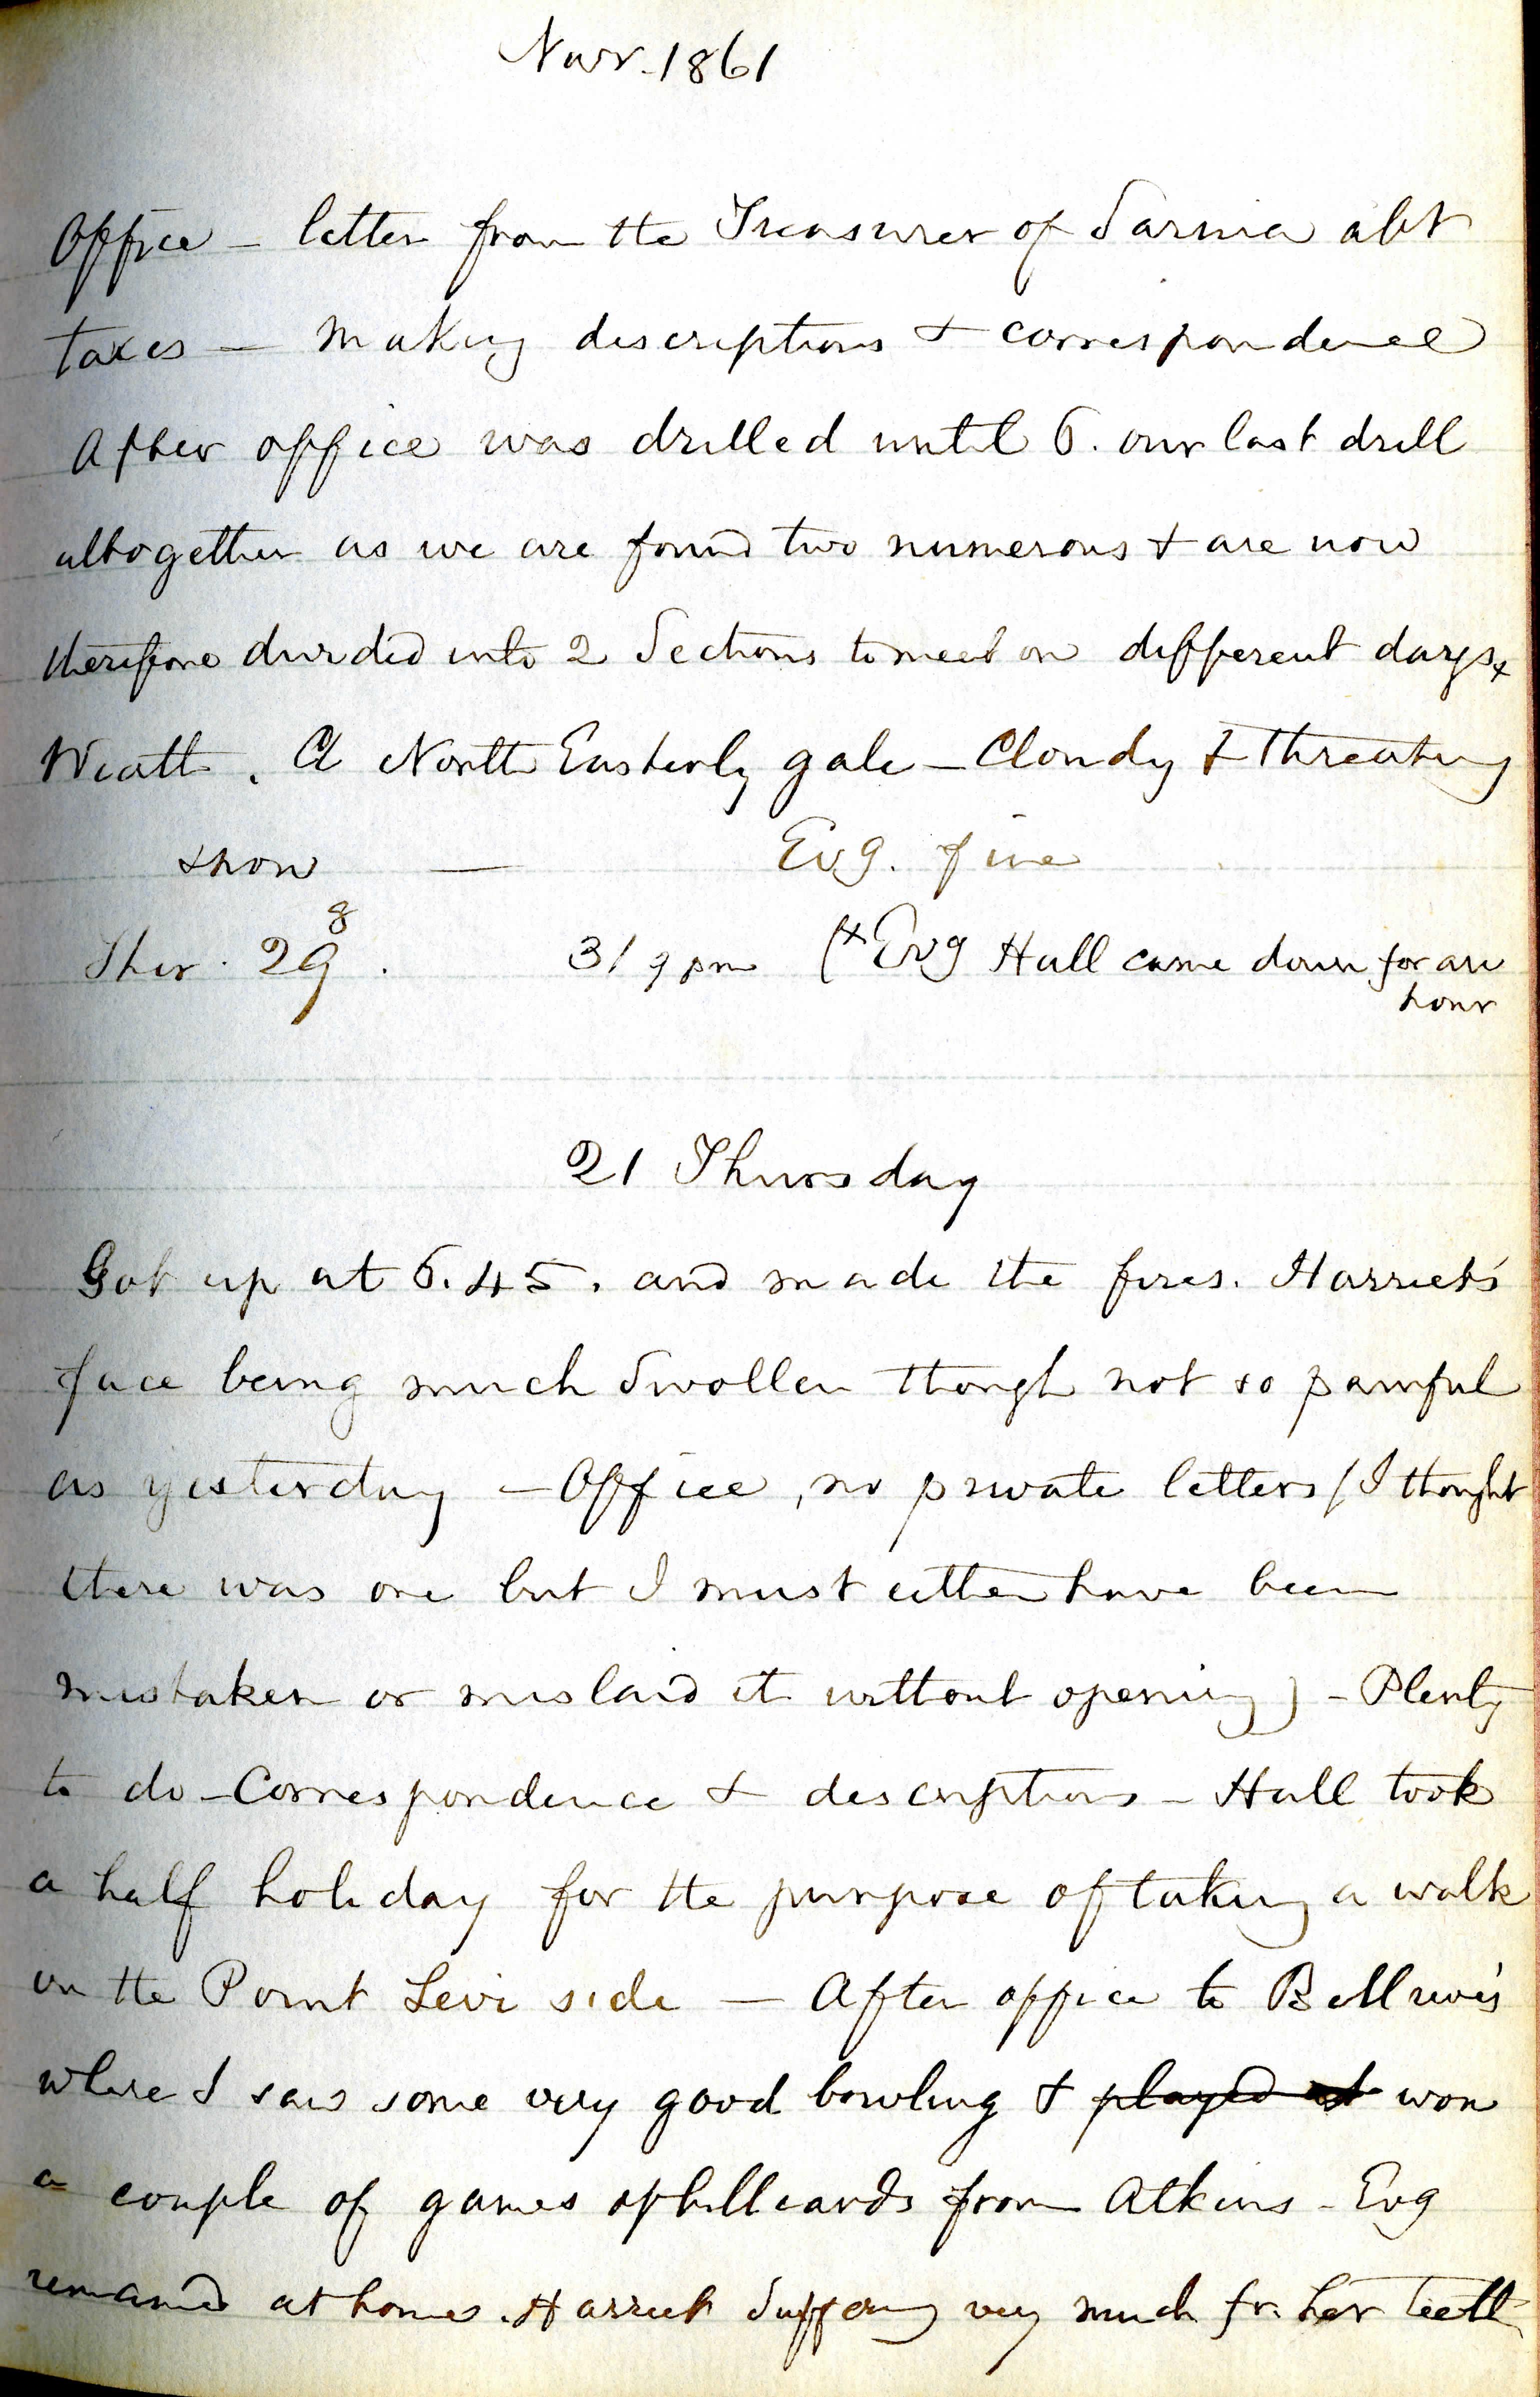 Novr. 1861
Office - letter from the Treasurer of Sarnia abt
taxes - Making descriptions & correspondence
After office was drilled until 6. our last drill
altogether as we are found two numerous & are now
therefore divided into 2 Sections to meet on different days x
Weath. A North Easterly gale - Cloudy & threatening
snow — Evg. fine
Ther. 29 8. 31 9 pm (x Evg Hall came down for an
hour
21 Thursday
Got up at 6.45. and made the fires. Harriet's
face being much Swollen though not so painful
as yesterday - Office, no private letters (I thought
there was one but I must either have been
mistaken or mislaid it without opening) - Plenty
to do - Correspondence & descriptions - Hall took
a half holiday for the purpose of taking a walk
on the Point Levi side - After office to
where I saw some very good bowling & played at won
a couple of games of billiards from Atkins - Evg
remained at home. Harriet Suffering very much fr. her teeth